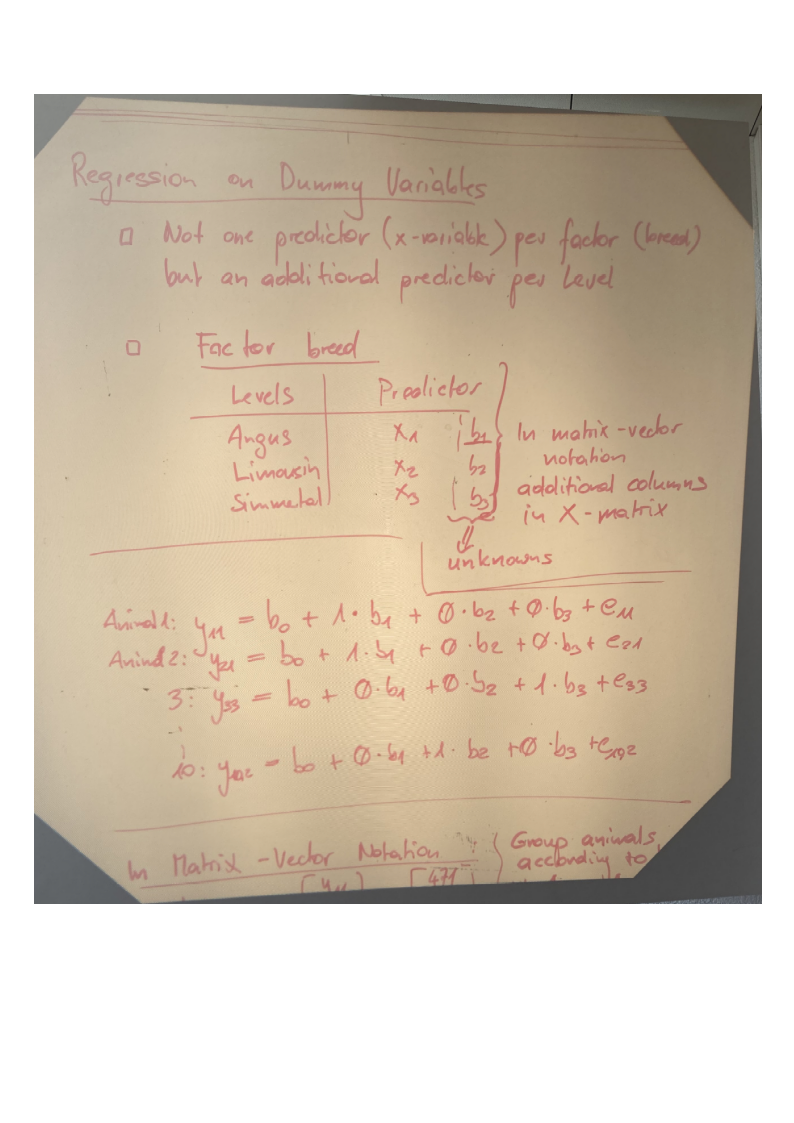 Regression on Dummy Variables
Not one predictor (x-variable) per factor (breed)
but an additional predictor per Level
Factor breed
Levels Predictor
Angus x1 b1
Limousin x2 b2
Simmetal x3 b3
In matrix-vector
notation
additional columns
in X-matrix
⇓
unknowns
Animal 1: y11 = b0 + 1·b1 + 0·b2 + 0·b3 + e11
Animal 2: y21 = b0 + 1·b1 + 0·b2 + 0·b3 + e21
3: y33 = b0 + 0·b1 + 0·b2 + 1·b3 + e33
10: y102 = b0 + 0·b1 + 1·b2 + 0·b3 + e102
In Matrix-Vector Notation
Group animals
according to
y11 471